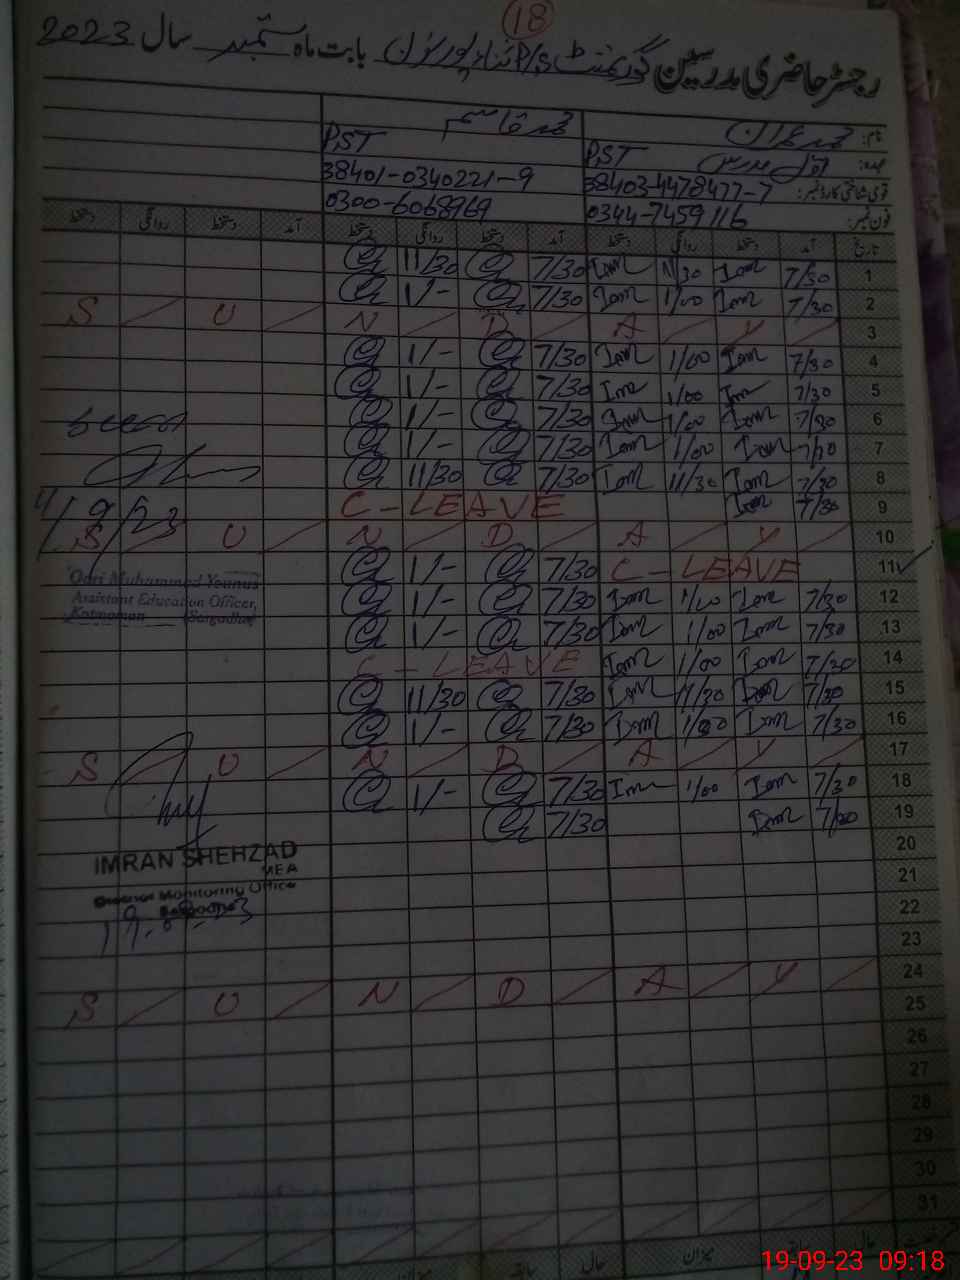 18
رجسٹر حاضری مدرسین گورنمنٹ P/S بابت ماہ ستمبر سال 2023
نام: محمد عمران محمد قاسم
عہدہ: PST اول مدرس PST
قومی شناختی کارڈ نمبر: 38403-4478477-7 38401-0340221-9
فون نمبر: 0344-7459116 0300-6068969
تاریخ آمد دستخط روانگی دستخط آمد دستخط روانگی دستخط آمد دستخط روانگی دستخط
1 7/30 Iam 11/30 Iam 7/30 11/30
2 7/30 Iam 1/00 Iam 7/30 1/-
3 S U N D A Y
4 7/30 Iam 1/00 Iam 7/30 1/-
5 7/30 Im 1/00 Im 7/30 1/-
6 7/30 Iam 1/00 Iam 7/30 1/-
7 7/30 Iam 1/00 Iam 7/30 1/-
8 7/30 Iam 11/30 Iam 7/30 11/30
9 7/30 Iam C-LEAVE
11/9/23
10 S U N D A Y
11 C-LEAVE 7/30 1/-
Qari Muhammad Younus
Assistant Education Officer,
Kotmoman (Sargodha)
12 7/30 Iam 1/00 Iam 7/30 1/-
13 7/30 Iam 1/00 Iam 7/30 1/-
14 7/30 Iam 1/00 Iam C-LEAVE
15 7/30 Iam 11/30 Iam 7/30 11/30
16 7/30 Iam 1/00 Iam 7/30 1/-
17 S U N D A Y
18 7/30 Iam 1/00 Im 7/30 1/-
19 7/30 Iam 7/30
IMRAN SHEHZAD
MEA
Monitoring Office
20
21
22
23
24 S U N D A Y
25
26
27
28
29
30
31
میزان حال میزان حال
19-09-23 09:18